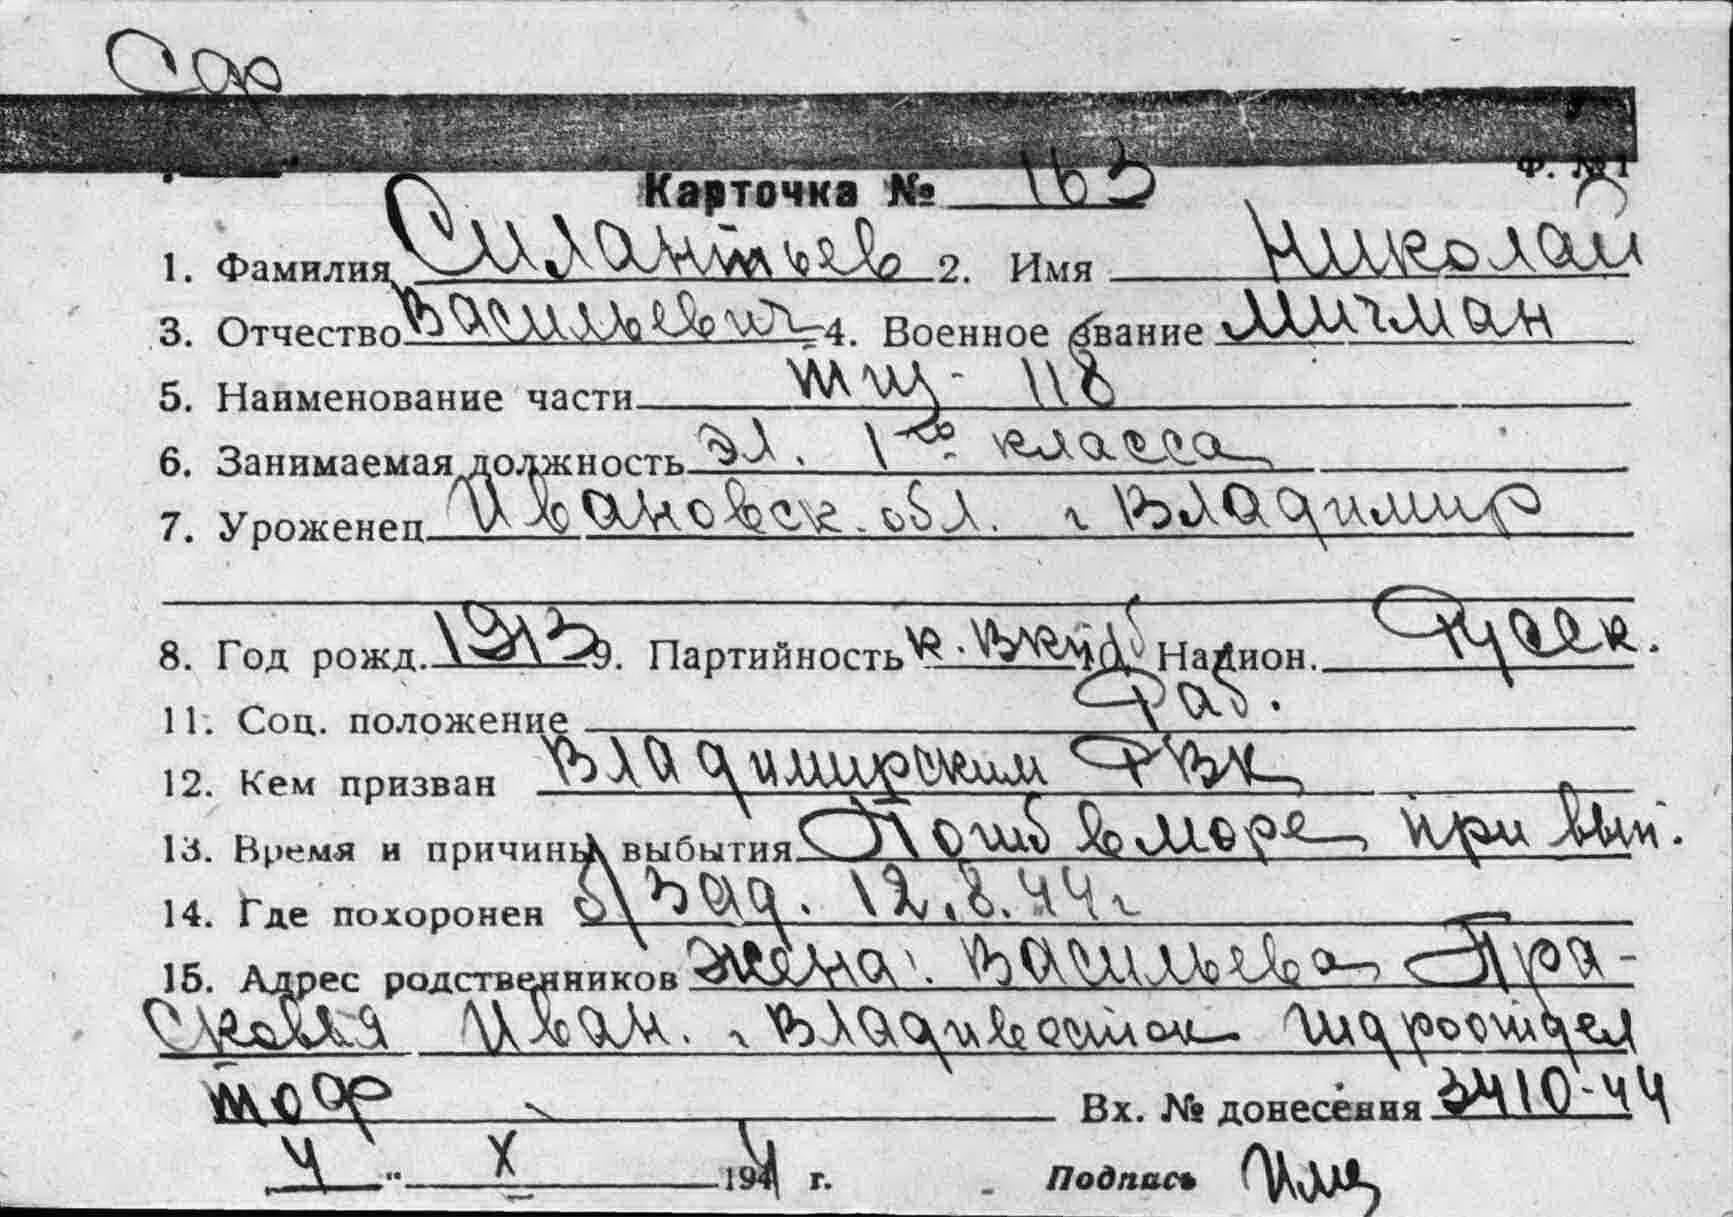 Сф
Ф. № 1
Карточка № 163
1. Фамилия Силантьев 2. Имя Николай
3. Отчество Васильевич 4. Военное звание Мичман
5. Наименование части тщ - 118
6. Занимаемая должность эл. 1го класса
7. Уроженец Ивановск. обл. г Владимир
8. Год рожд. 1913 9. Партийность к. ВКПб 10. Национ. Русск.
11. Соц. положение Раб.
12. Кем призван Владимирским РВК
13. Время и причины выбытия Погиб в море при вып.
14. Где похоронен б/зад. 12.8.44 г
15. Адрес родственников жена: Васильева Пра-
сковья Иван. г Владивосток Гидроотдел
тоф Вх. № донесения 3410-44
4 " X 1944 г. Подпись